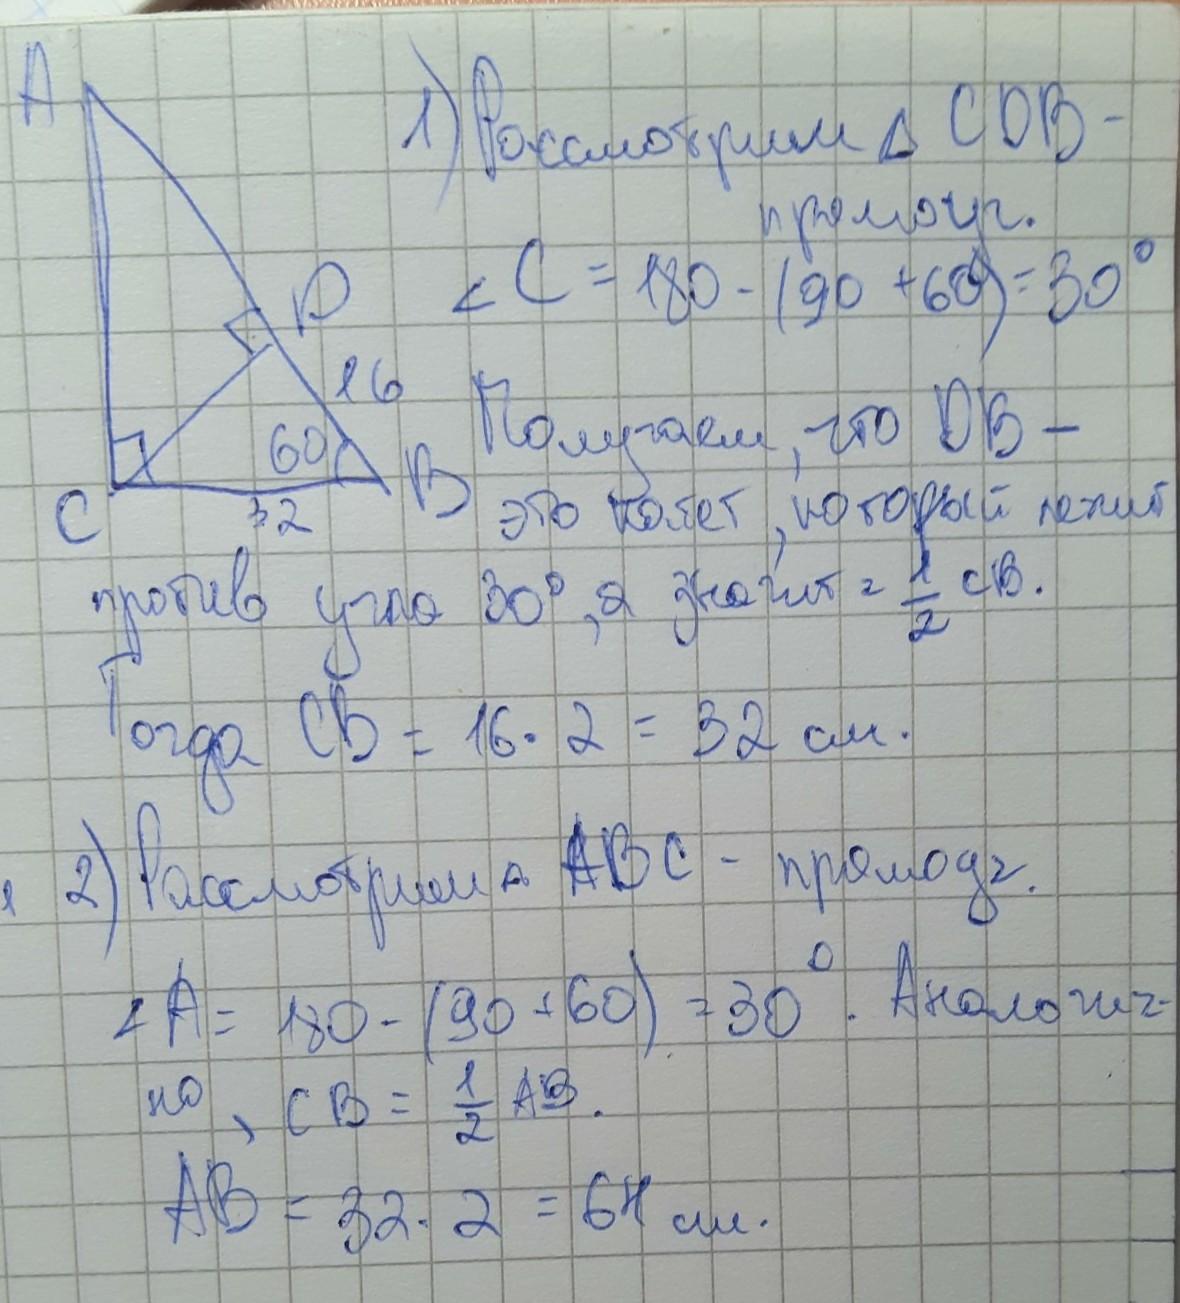 A
1) Рассмотрим △ CDB -
прямоуг.
∠ C = 180 - (90 + 60) = 30°
D
16
60
C
32
B
Получаем, что DB —
это катет, который лежит
против угла 30°, а значит = 1/2 CB.
Тогда CB = 16 · 2 = 32 см.
2) Рассмотрим △ ABC - прямоуг.
∠ A = 180 - (90 + 60) = 30°. Аналогич-
но, CB = 1/2 AB.
AB = 32 · 2 = 64 см.